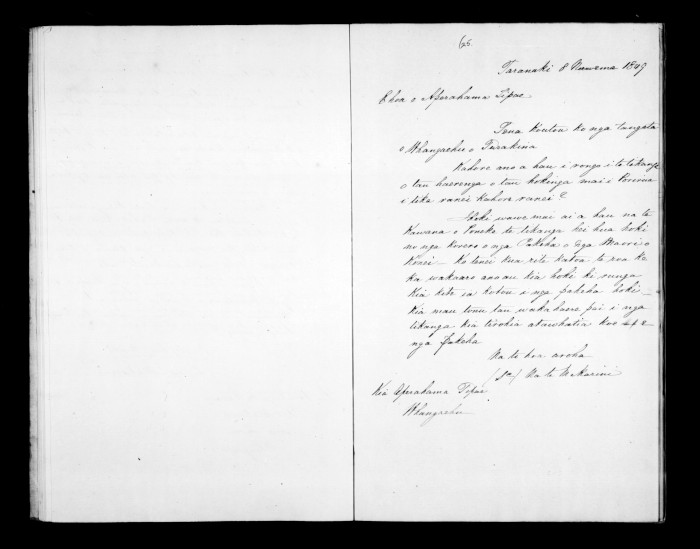 65
Taranaki 8 Nowema 1849
E hoa e Aperahama Tipae
Tena koutou ko nga tangata
o Whangaehu o Turakina
Kahore ano a hau i rongo i te tikanga
o tau haerenga o tau hokinga mai i Porirua
i tika ranei kahore ranei?
Hoki wawe mai ai a hau na te
Kawana o Poneke te tikanga hei hua hoki
no nga korero o nga Pakeha o nga Maori o
Konei – Ko tenei kua rite katoa te roa ke
ka wakaaro ano au kia hoki ki runga
kia kite ia koutou i nga pakeha hoki –
kia mau tonu tau wakahaere pai i nga
tikanga kia tirohia atawhaitia koe e
nga pakeha
Na te hoa aroha
Na te Makarini
Kia Aperahama Tipae
Whangaehu